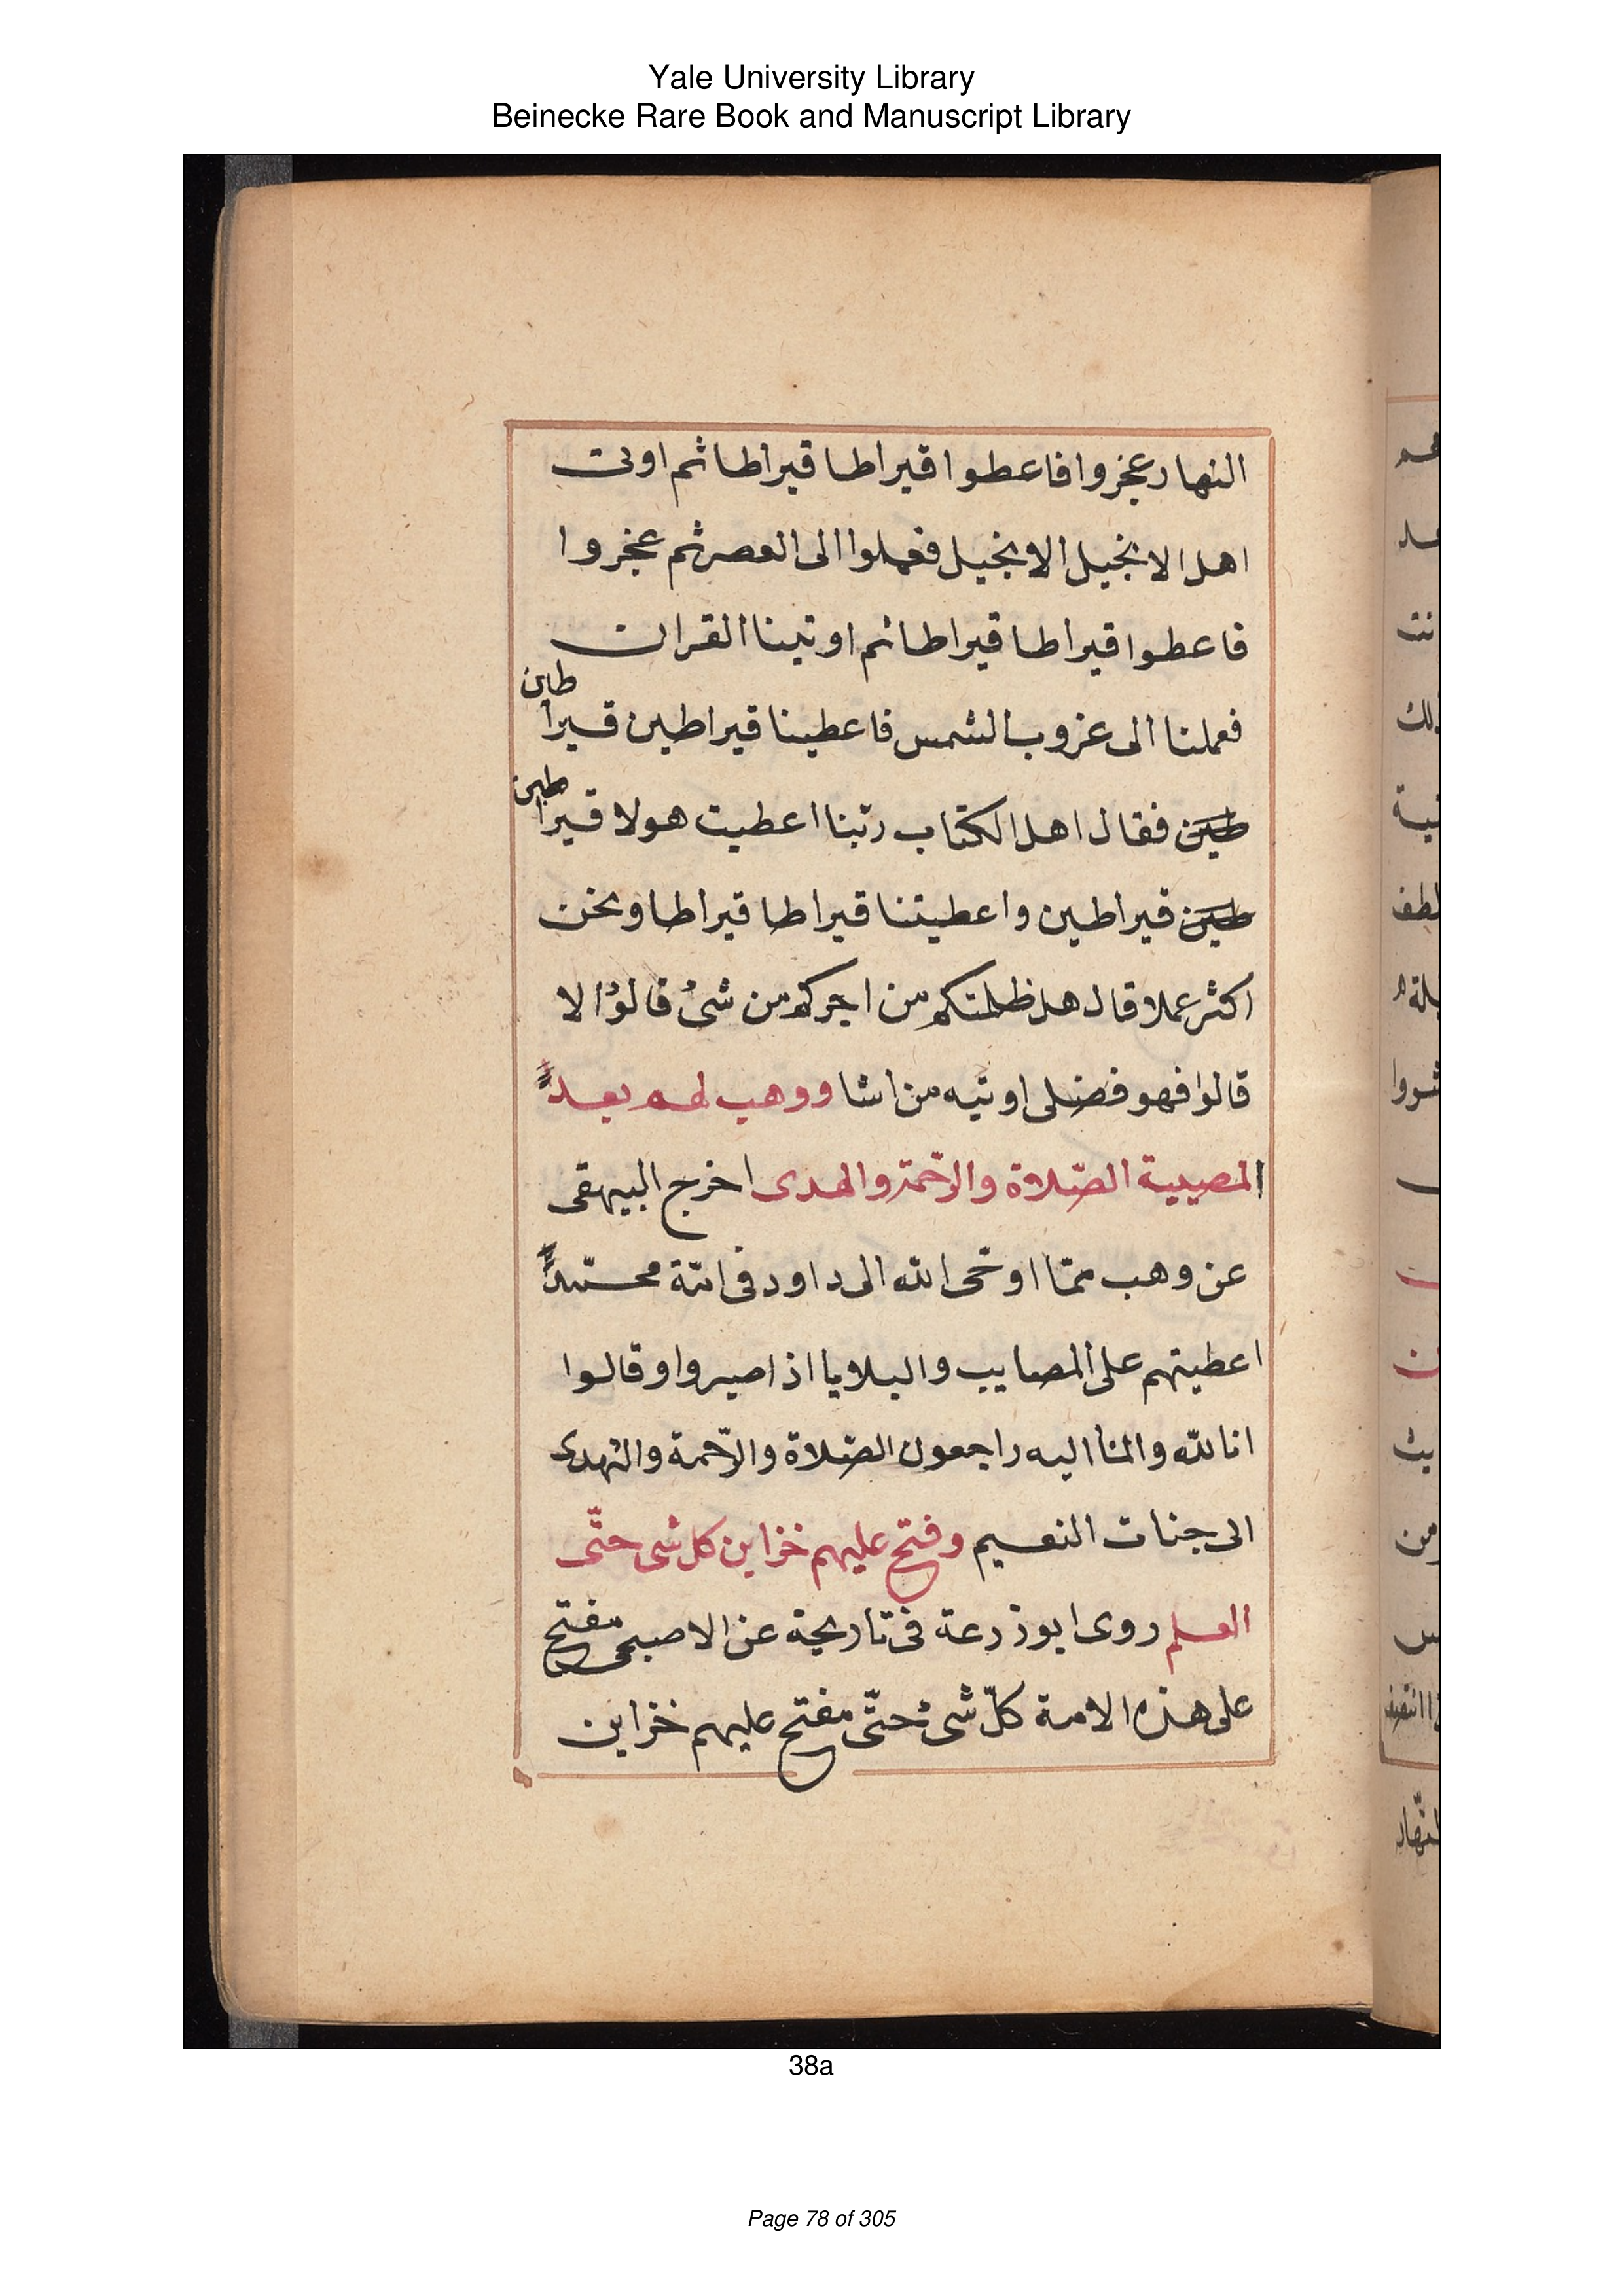 Yale University Library
Beinecke Rare Book and Manuscript Library
النهار عجزوا فاعطوا قيراطا قيراطا ثم اوتى
اهل الانجيل الانجيل فعملوا الى العصر ثم عجزوا
فاعطوا قيراطا قيراطا ثم اوتينا القران
فعملنا الى غروب الشمس فاعطينا قيراطين قيراطين
طين فقال اهل الكتاب ربّنا اعطيت هولا قيراطين
طين قيراطين واعطيتنا قيراطا قيراطا ونحن
اكثر عملا قال هل ظلمتكم من اجركم من شئ قالوا لا
قالوا فهو فضلى اوتيه من اشا ووهب لهم بعد
المصيبة الصّلاة والرّحمة والهدى اخرج البيهقى
عن وهب ممّا اوحى الله الى داود فى امّة محمّد
اعطيتهم على المصايب والبلايا اذا صبروا وقالوا
انا لله وانا اليه راجعون الصّلاة والرّحمة والهدى
الى جنات النعيم وفتح عليهم خزاين كل شى حتّى
العلم روى ابو زرعة فى تاريخة عن الاصبحى مفتح
على هذه الامة كلّ شئ حتّى مفتح عليهم خزاين
38a
Page 78 of 305